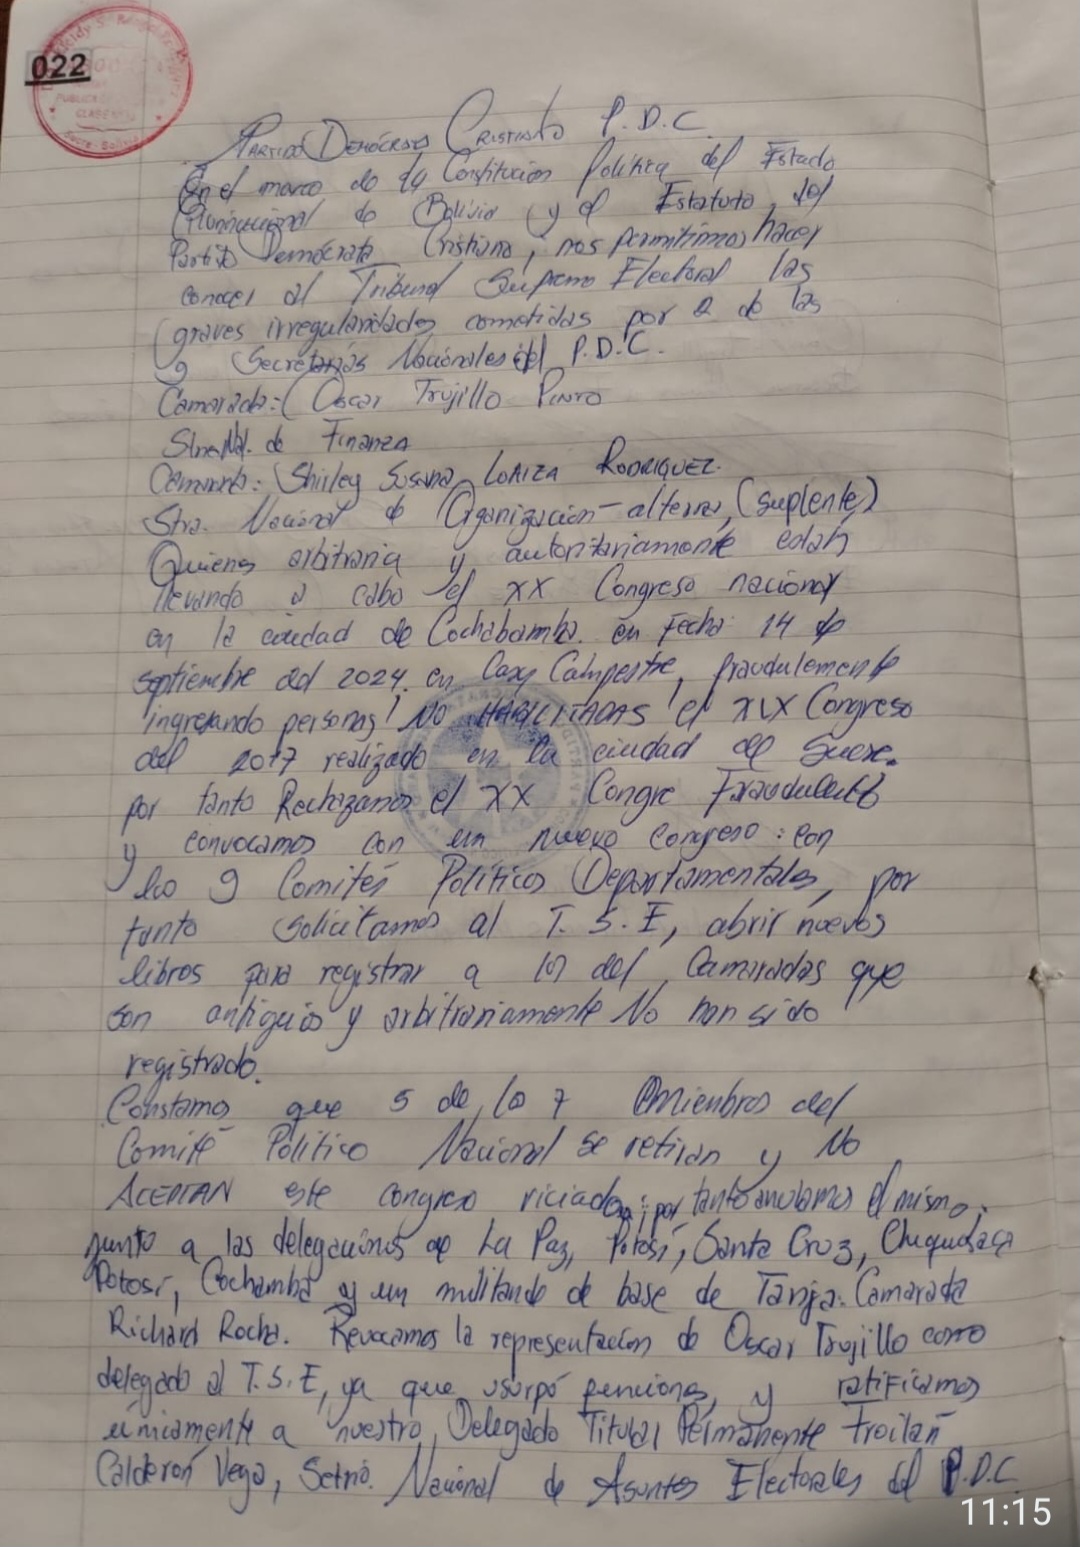 022
Sucre - Bolivia
PARTIDO DEMÓCRATA CRISTIANO P.D.C.
En el marco de la Constitución Política del Estado
Plurinacional de Bolivia y el Estatuto del
Partido Demócrata Cristiano, nos permitimos hacer
conocer al Tribunal Supremo Electoral las
graves irregularidades cometidas por 2 de las
9 Secretarías Nacionales del P.D.C.
Camarada: Oscar Trujillo PINTO
Nal. de Finanza
Camarada: Shirley Susana LOAIZA RODRIGUEZ.
Stra. Nacional de Organización - alterna, (suplente)
Quienes arbitraria y autoritariamente están
llevando a cabo el XX Congreso nacional
en la ciudad de Cochabamba. en Fecha: 14 de
septiembre del 2024. en Casa Campestre, fraudulemente
ingresando personas NO HABILITADAS el XIX Congreso
del 2017 realizado en la ciudad de Sucre.
por tanto Rechazamos el XX Congre
y convocamos con un nuevo congreso: con
los 9 Comités Políticos Departamentales, por
tanto solicitamos al T.S.E, abrir nuevos
libros para registrar a del Camaradas que
son antiguos y arbitrariamente No han sido
registrado.
Constamos que 5 de lo 7 Miembros del
Comité Político Nacional se retiran y No
ACEPTAN este congreso viciado; por tanto anulamos el mismo.
junto a las delegaciones de La Paz, Potosí, Santa Cruz, Chuquisaca
Potosí, Cochamba y un militande de base de Tarija. Camarada
Richard Rocha. Revocamos la representación de Oscar Trujillo como
delegado al T.S.E, ya que usurpó funciones, y ratificamos
únicamente a nuestro Delegado Titular Permanente Froilan
Calderón Vega, Setrio. Nacional de Asuntos Electorales del P.D.C.
11:15